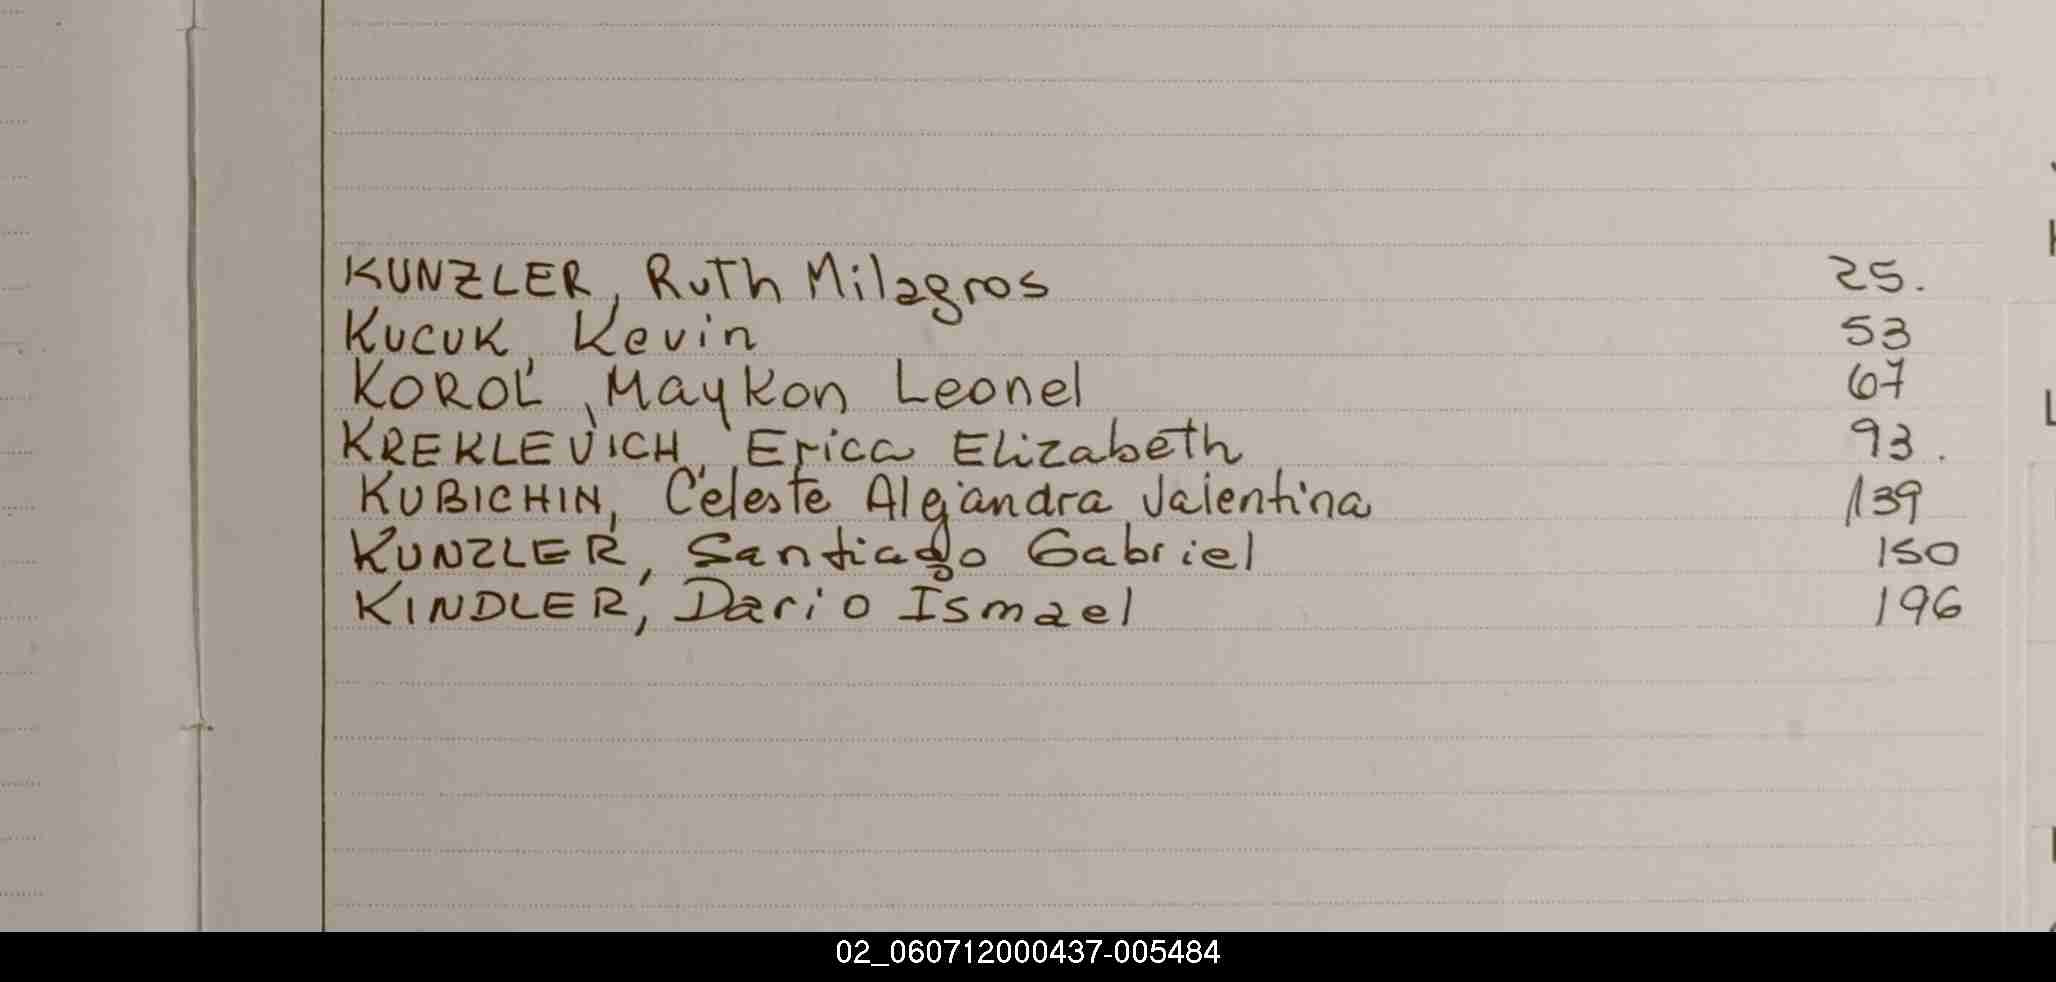 KUNZLER, Ruth Milagros 25.
KUCUK, Kevin 53
KOROL, Maykon Leonel 67
KREKLEVICH, Erica Elizabeth 93.
KUBICHIN, Celeste Alejandra Valentina 139
KUNZLER, Santiago Gabriel 150
KINDLER, Dario Ismael 196
02_060712000437-005484